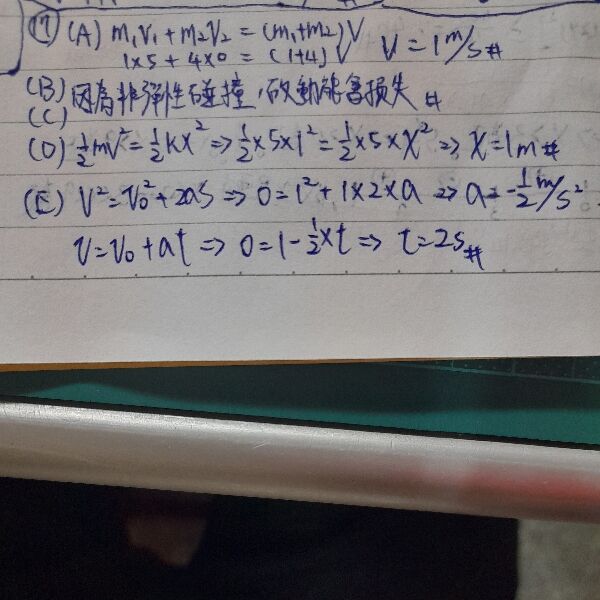 ⑰ (A) m₁v₁+m₂v₂ = (m₁+m₂)V
1×5+4×0 = (1+4)V V=1m/s#
(B) 因為非彈性碰撞,故動能會損失#
(C)
(D) ½mv²=½kx² ⇒ ½×5×1²=½×5×x² ⇒ x=1m#
(E) V²=V₀²+2as ⇒ 0=1²+1×2×a ⇒ a=-½m/s²
V=V₀+at ⇒ 0=1-½×t ⇒ t=2s#